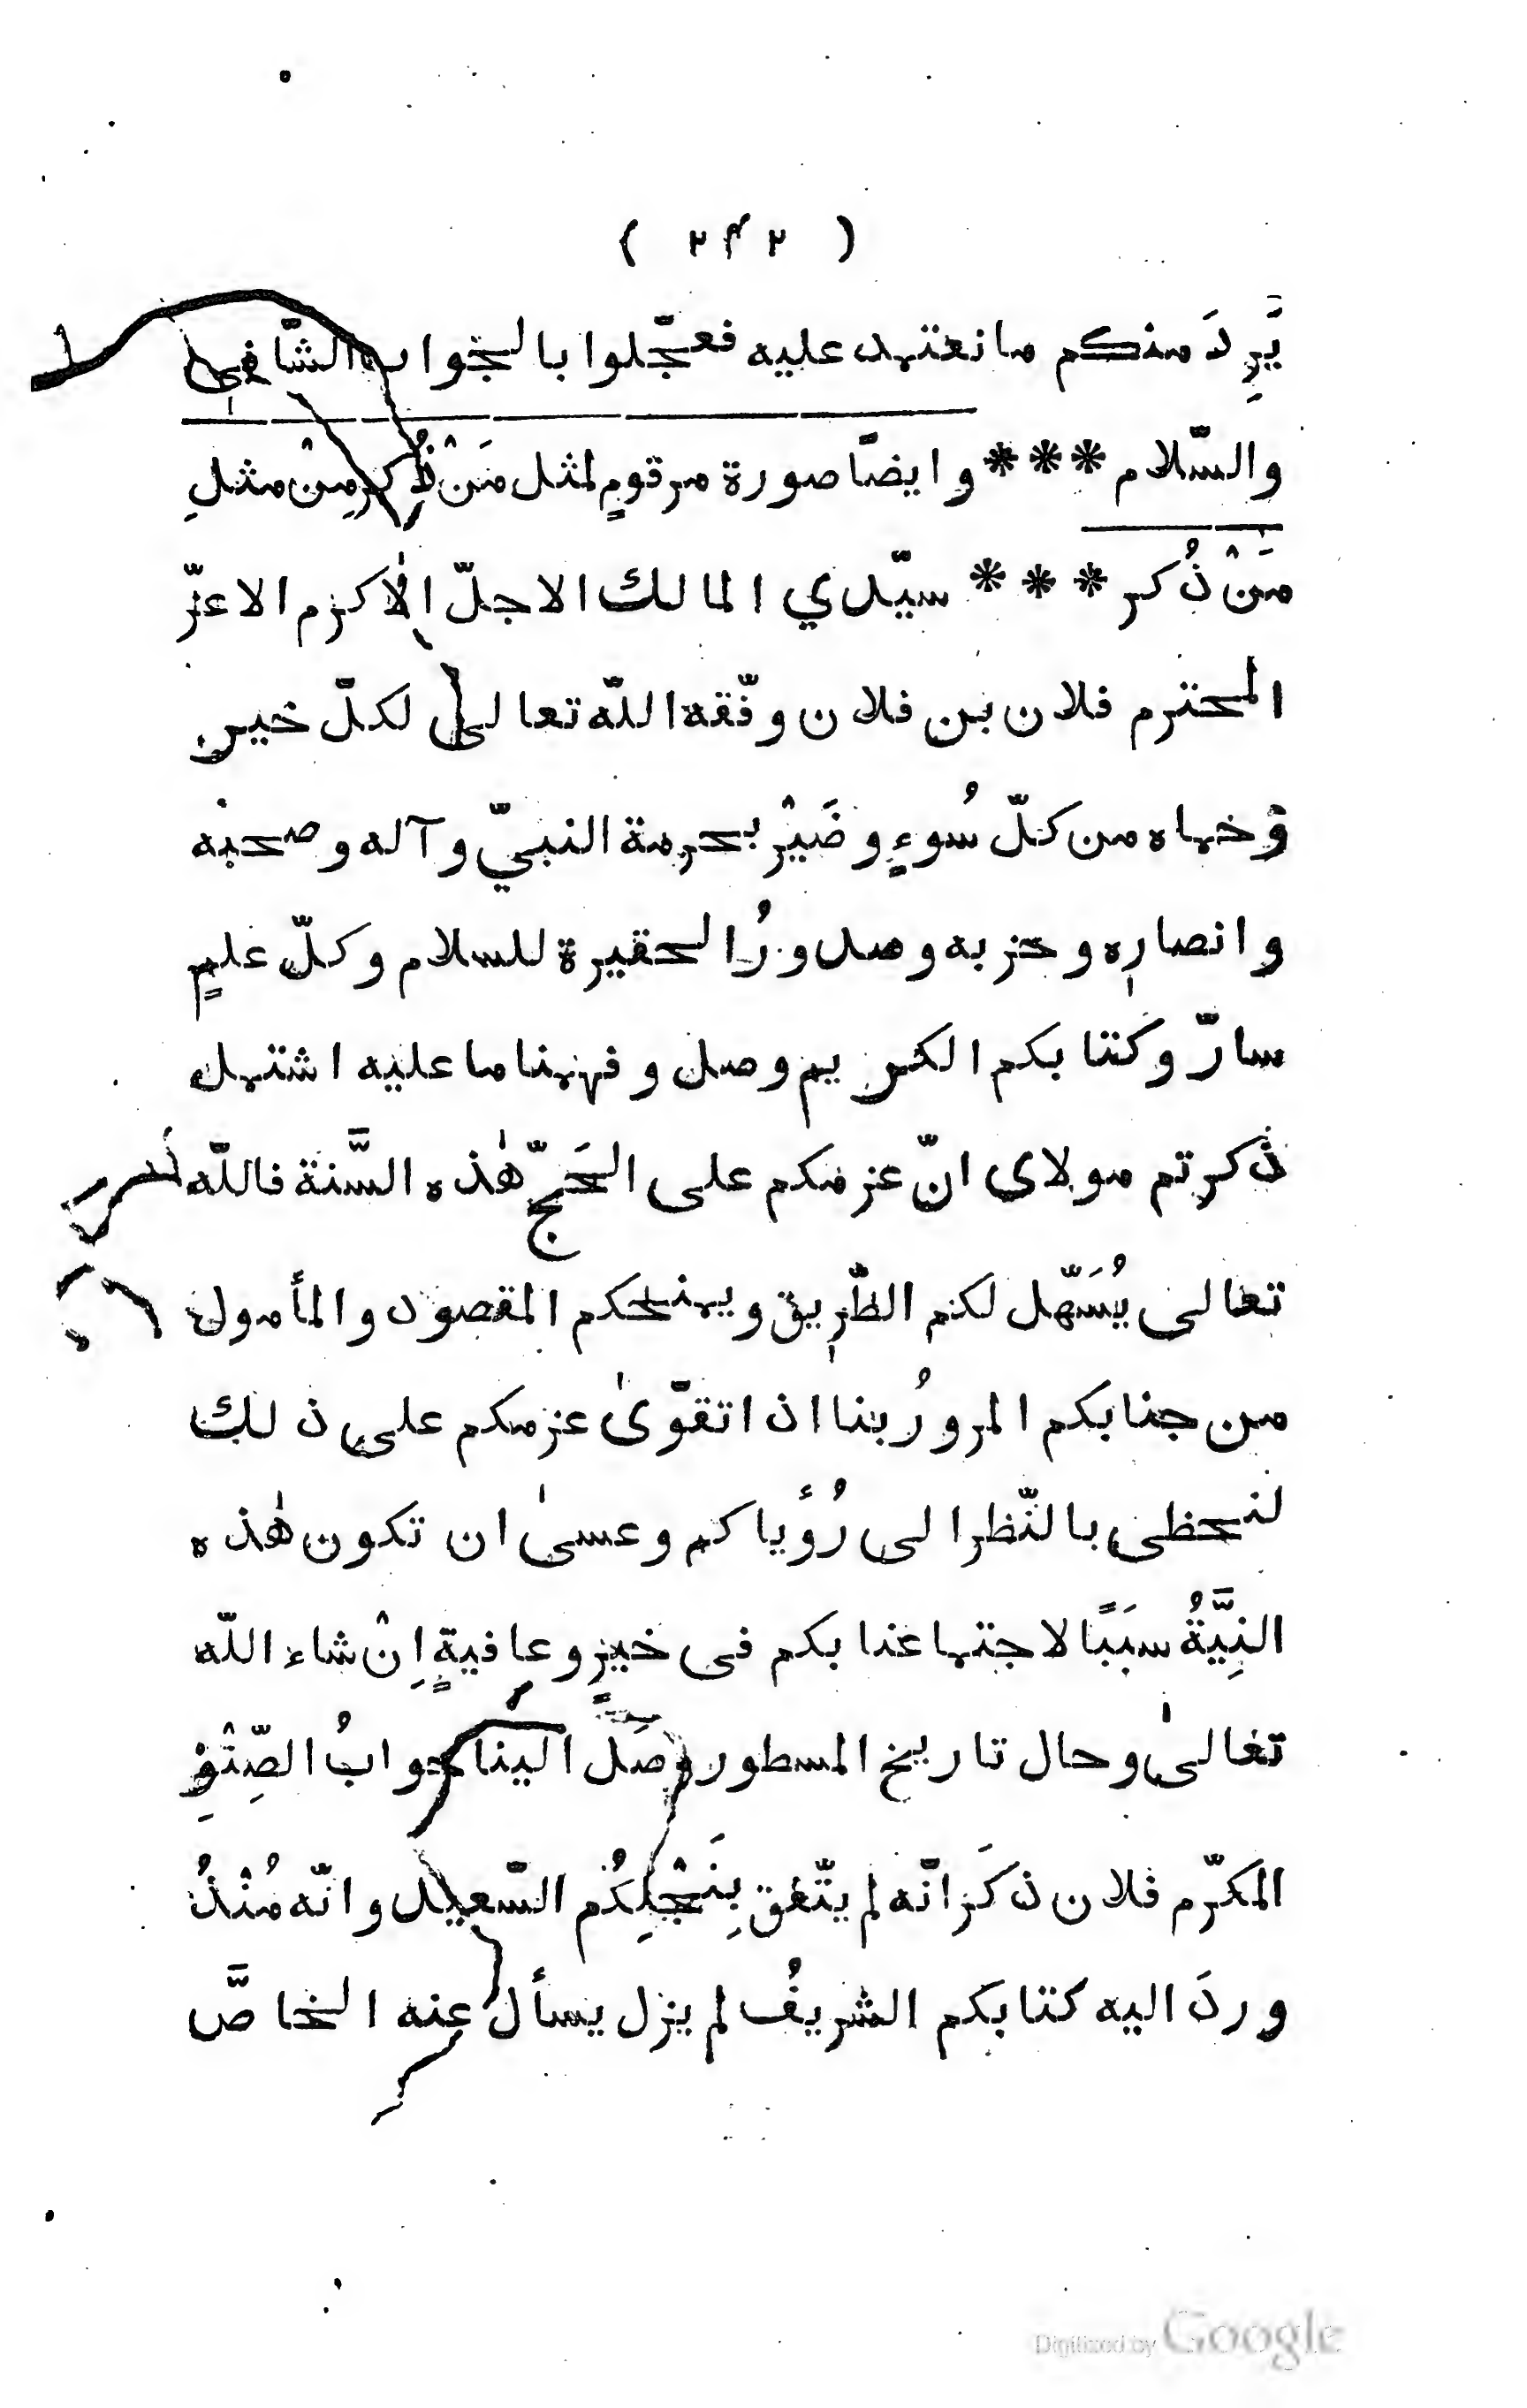 ( ٢٤٢ )
يَّرِدَ منكم ما نعتمد عليه فعجّلوا بالجواب الشّافي
والسّلام *** وايضًا صورة مرقومٍ لمثل مَنْ ذُكر مِنْ مثلِ
مَنْ ذُكر *** سيّدي المالك الاجلّ الاكرم الاعزّ
المحترم فلان بن فلان وفّقه الله تعالى لكلّ خير
وحماه من كلّ سُوءٍ وضَيْر بحرمة النبيّ وآله وصحبه
وانصاره وحزبه وصدورُ الحقيرة للسلام وكلّ علمٍ
سارّ وكتابكم الكريم وصل وفهمنا ما عليه اشتمل
ذكرتم مولاى انّ عزمكم على الحَجّ هٰذه السَّنة فالله
تعالى يُسَهّل لكم الطّريق ويمنحكم المقصود والمأمول
من جنابكم المرورُ بنا اذا تقوّىٰ عزمكم على ذلك
لنحظى بالنّظر الى رُؤياكم وعسىٰ ان تكون هٰذه
النِّيَّةُ سبَبًا لاجتماعنا بكم فى خيرٍ وعافيةٍ اِنْ شاء الله
تعالىٰ وحال تاريخ المسطور وصَلَ الينا جوابُ الصِّنْوِ
المكرّم فلان ذكَرَ انّه لم يتّفق بِنَجْلِكُم السّعيد وانّه مُنْذُ
وردَ اليه كتابكم الشريفُ لم يزل يسأل عنه الخاصَّ
Digitized by Google